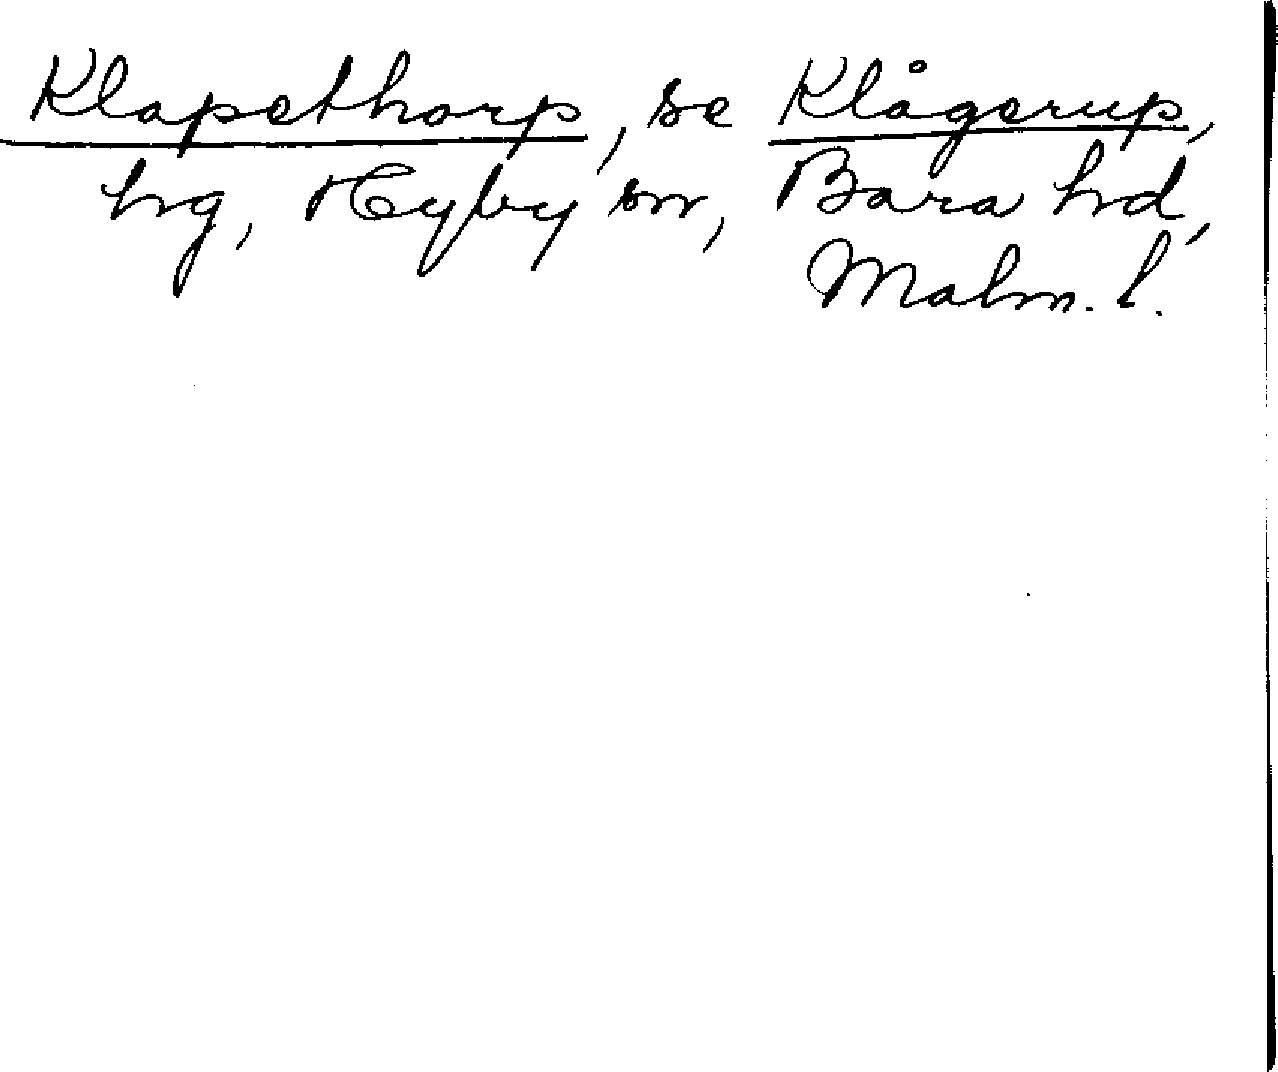 Klapethorp, se Klågerup,
hg, Hyby sn, Bara hd,
Malm. l.